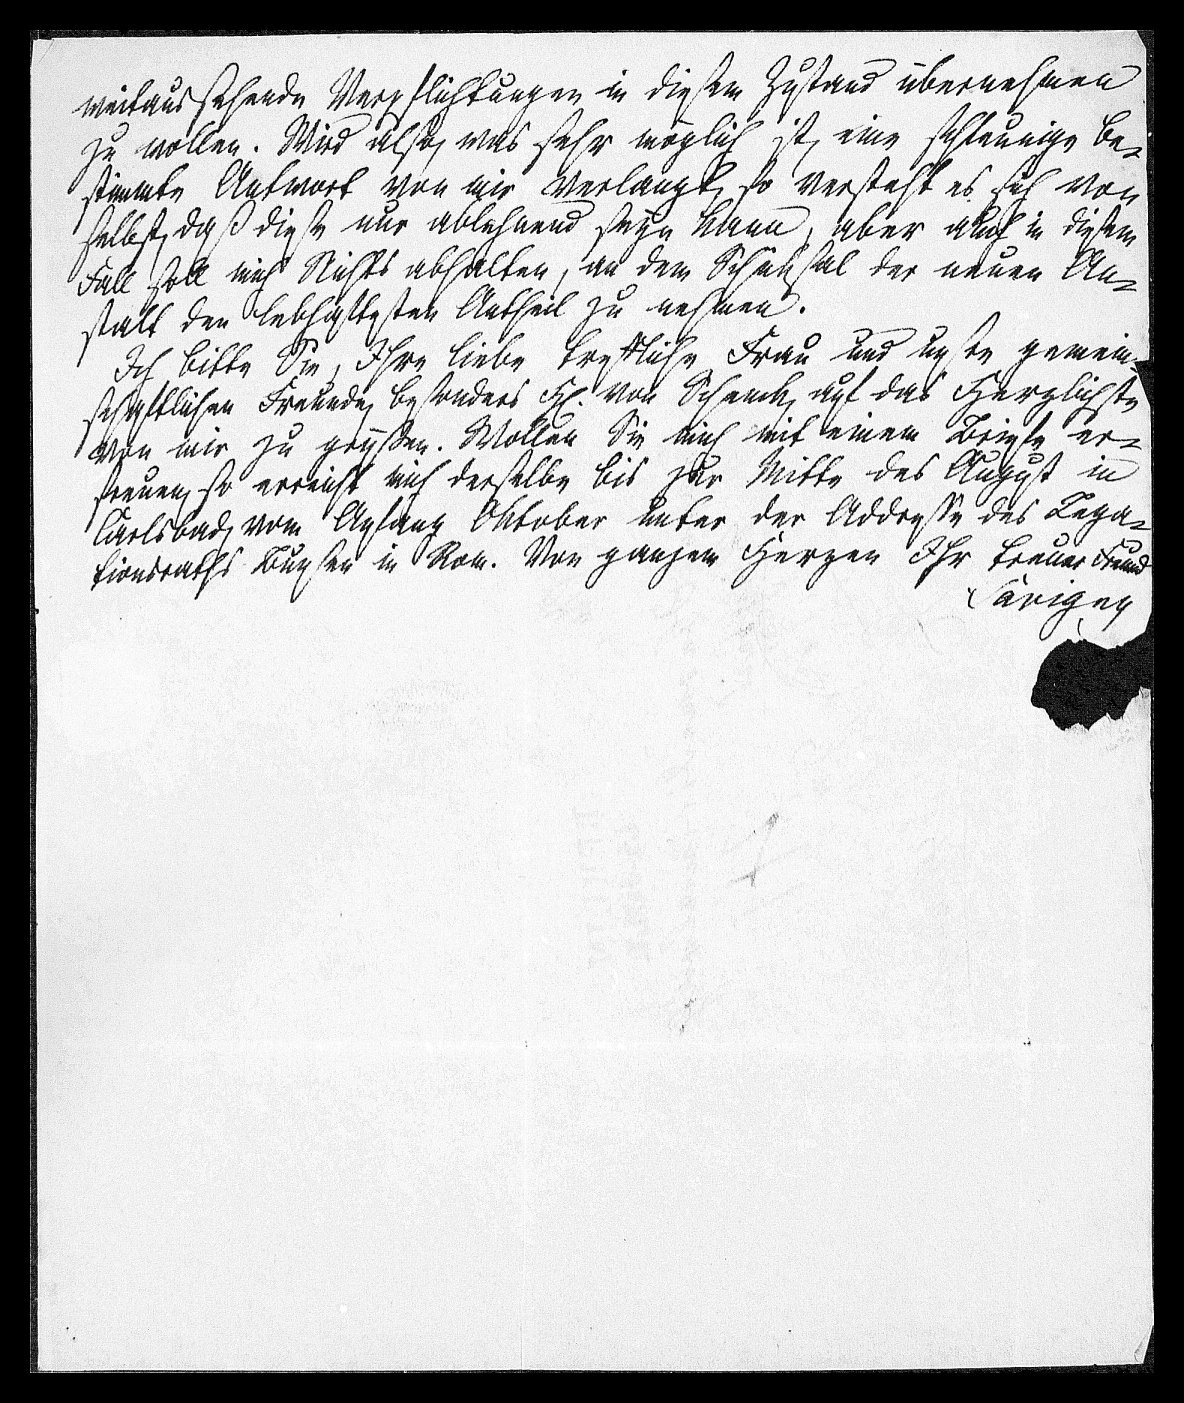 weitaussehende Verpflichtungen in diesem Zustand übernehmen
zu wollen. Wird also, was sehr möglich ist, eine schleunige be-
stimmte Antwort von mir verlangt, so versteht es sich von
selbst, daß diese nur ablehnend seyn kann, aber auch in diesem
Fall soll mich Nichts abhalten, an dem Schicksal der neuen An-
stalt den lebhaftesten Antheil zu nehmen.
Ich bitte Sie, Ihre liebe treffliche Frau und unsre gemein-
schaftlichen Freunde, besonders H. von Schenck, auf das Herzlichste
von mir zu grüßen. Wollen Sie mich mit einem Briefe er-
freuen, so erreicht mich derselbe bis zur Mitte des August in
Carlsbad, vom Anfang Oktober unter der Addresse des Lega-
tionsraths Bunsen in Rom. Von ganzem Herzen Ihr treuer Freund
Savigny